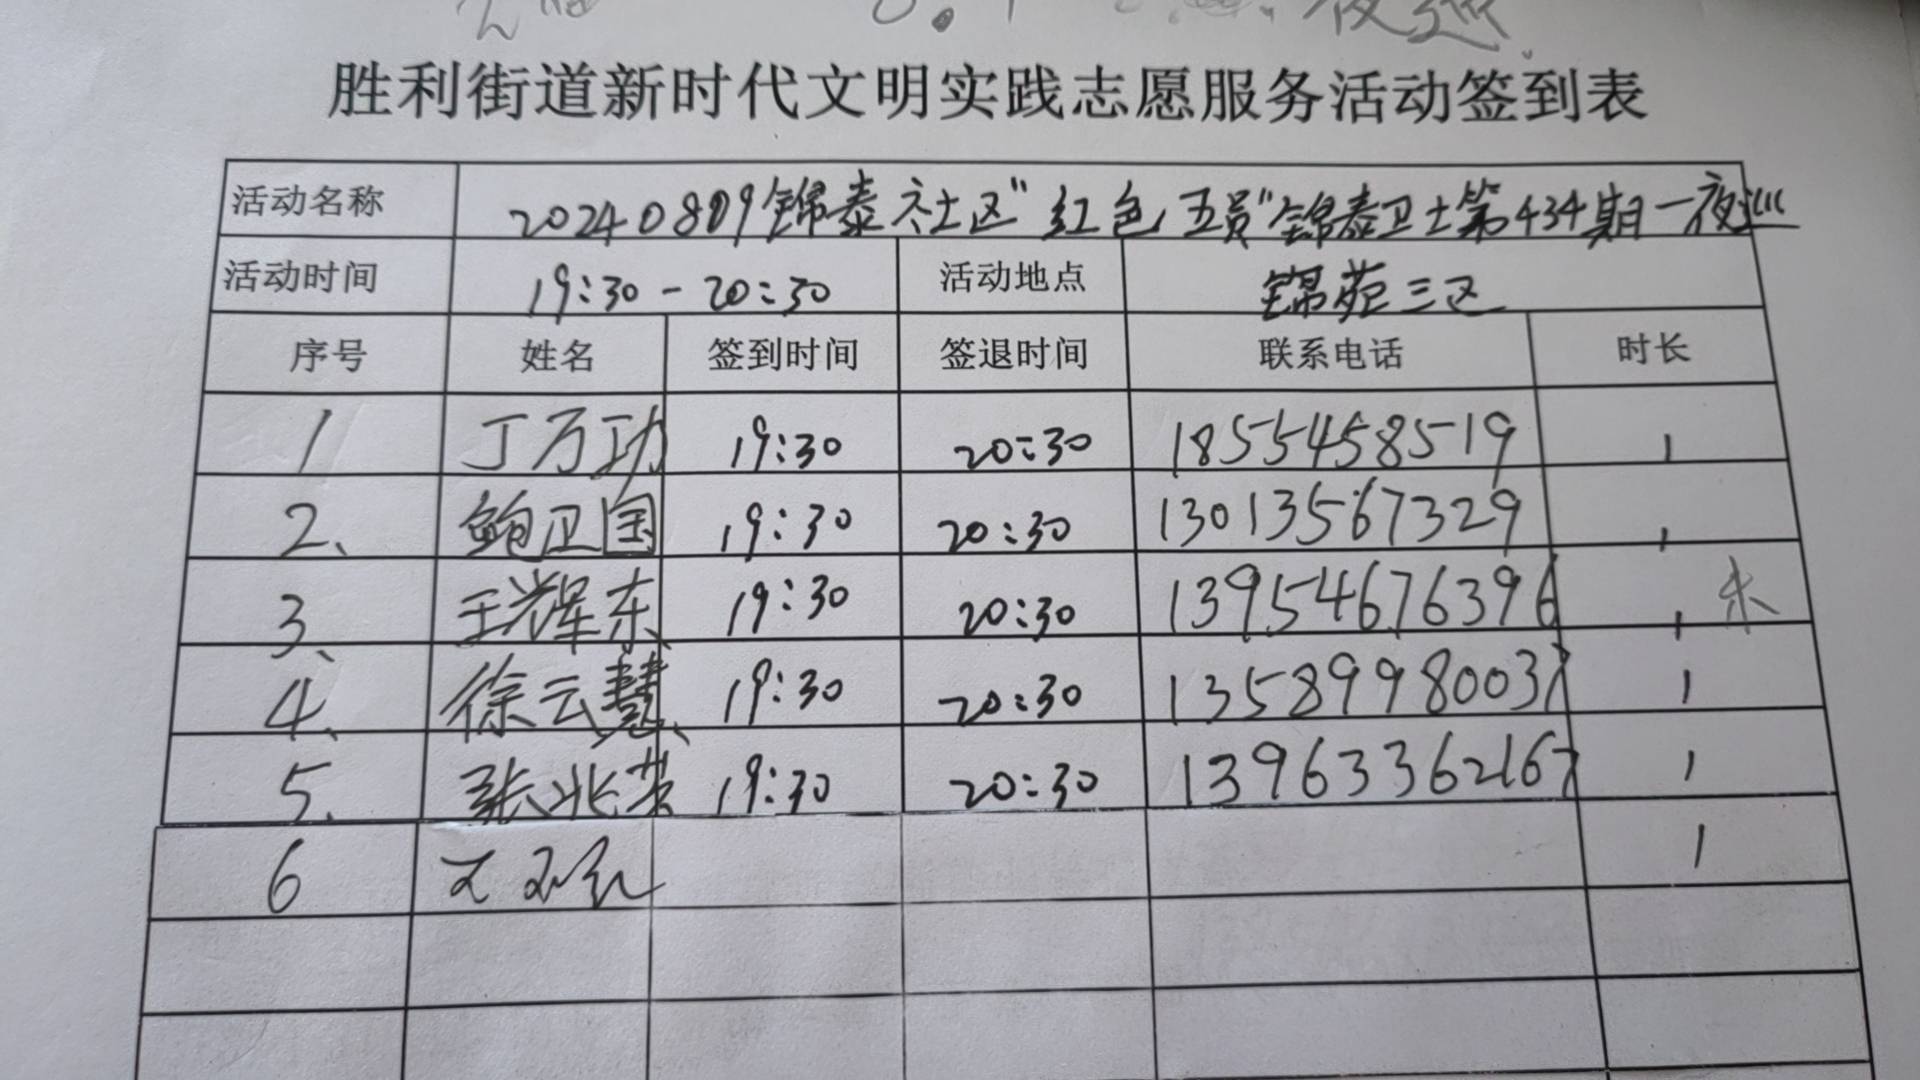 夜巡
胜利街道新时代文明实践志愿服务活动签到表
活动名称 20240809锦泰社区"红色五员"锦泰卫士第434期一夜巡
活动时间 19:30-20:30 活动地点 锦苑三区
序号 姓名 签到时间 签退时间 联系电话 时长
1 丁万功 19:30 20:30 18554585519 1
2、 鲍卫国 19:30 20:30 13013567329 1
3、 王辉东 19:30 20:30 13954676396 1 未
4、 徐云慧 19:30 20:30 1358998003 1
5、 张兆 19:30 20:30 13963362167 1
6 1